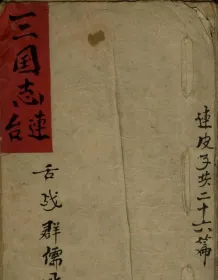 連皮子共二十六篇
三国志
連台
舌战群儒